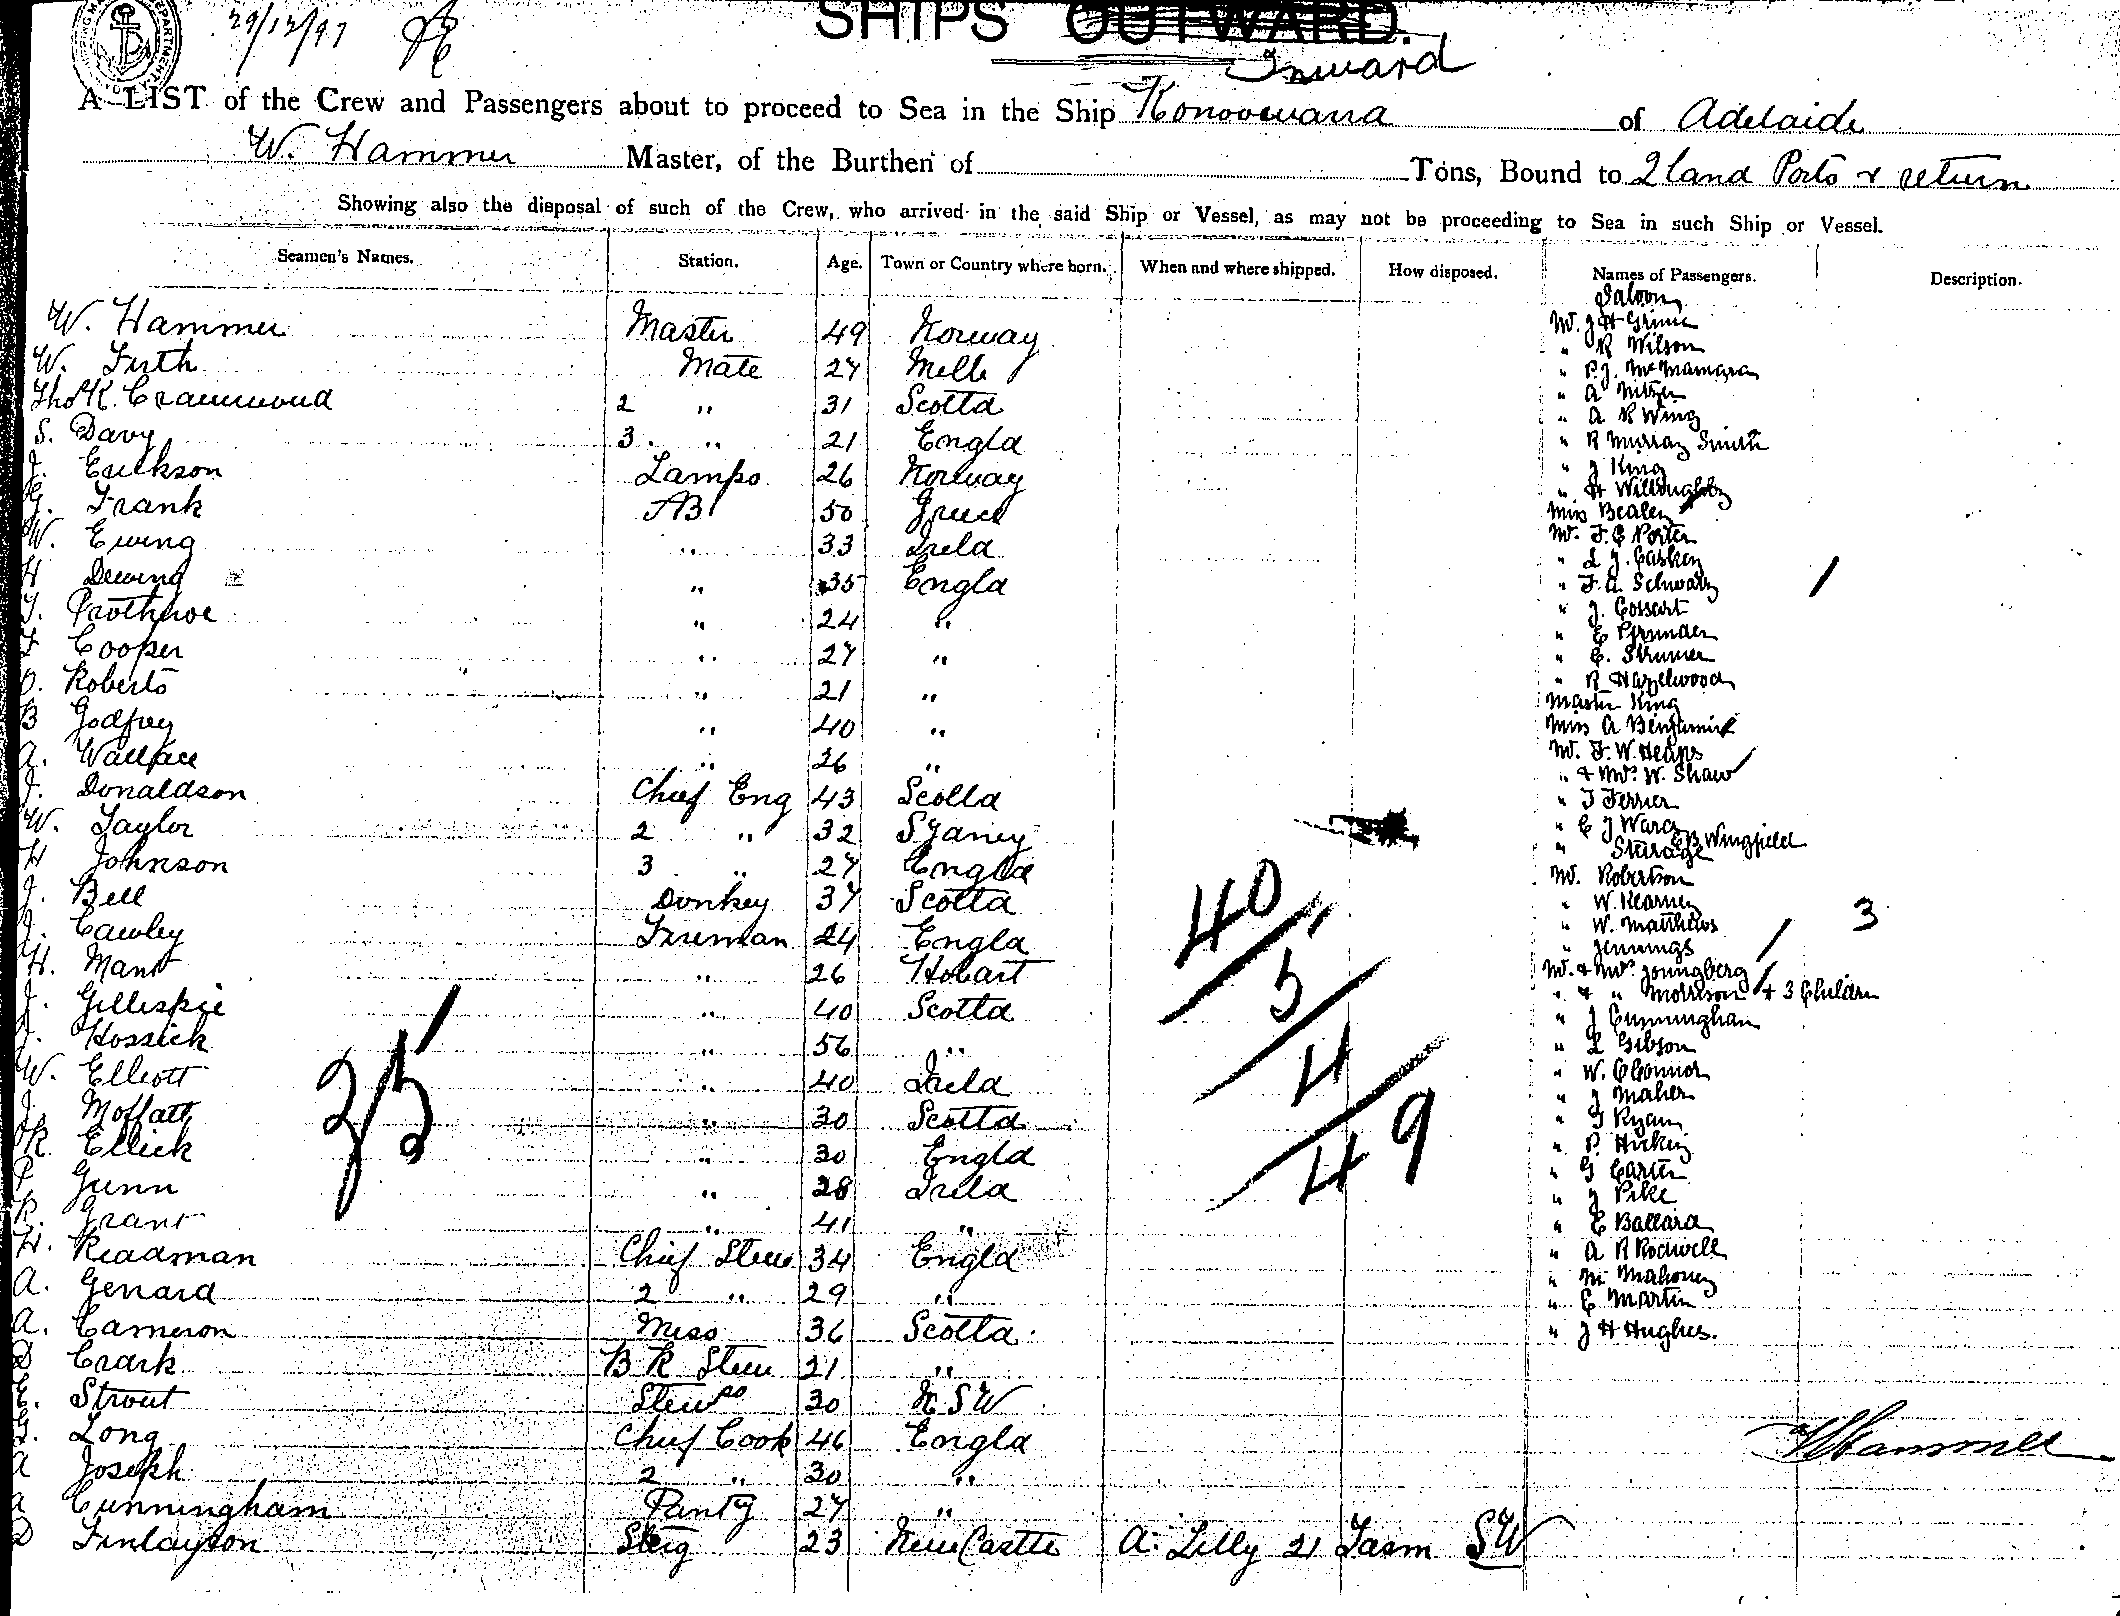 29/12/97
SHIPS OUTWARD.
Inward
A LIST of the Crew and Passengers about to proceed to Sea in the Ship Konoowarra of Adelaide
W. Hammer Master, of the Burthen of Tons, Bound to Qland Ports & return
Showing also the disposal of such of the Crew, who arrived in the said Ship or Vessel, as may not be proceeding to Sea in such Ship or Vessel.
Seamen's Names. Station. Age. Town or Country where born. When and where shipped. How disposed. Names of Passengers. Description.
W. Hammer Master 49 Norway
W. Firth Mate 27 Melb
Thos K. 2 " 31 Scotld
S. Davy 3. " 21 Engld
J. Erickson Lamps 26 Norway
G. Frank AB 50 Greece
W. Ewing " 33 Ireld
H Dewing " 35 Engld
T. Protheroe " 24 "
F Cooper " 27 "
O. Roberts " 21 "
B Godfrey " 40 "
A. Wallace " 26 "
J. Donaldson Chief Eng 43 Scotld
W. Taylor 2 " 32 Sydney
H Johnson 3 " 27 Engld
J. Bell Donkey 37 Scotld
J. Cawley Fireman 24 Engld
H. Mant " 26 Hobart
J. Gillespie " 40 Scotld
J. Hossick " 56 "
W. Elliott " 40 Ireld
J. Moffatt " 30 Scotld
R. Ellick " 30 Engld
P Gunn " 28 Ireld
R. Grant " 41 "
H. Readman Chief Stew 34 Engld
A. Genard 2 " 29 "
A. Cameron Mess 36 Scotld
D Crark B R Stew 21 "
E. Strout Stewss 30 N.S.W
G. Long Chief Cook 46 Engld
A Joseph 2 " 30 "
A Cunningham Pantry 27 "
D Finlayson Steig 23 NewCastle A. Lilly 21 Tasm SW
25
40
5
4
49
Saloon
Mr. J H Grime
" R Wilson
" P.J. McNamara
" A
" A R Wing
" R Murray Smith
" J King
" H Willoughby
Miss Bealey
Mr. F. E Porter
" L J. Caskey
" F. A. Schwarz
" J. Cossart
" E
" C. Strumer
" R Hazelwood
Master King
Miss A Benjamin
Mr. F. W. Heaps
" & Mrs W. Shaw
" J Ferrier
" E J Ward
" E B Wingfield
Steerage
Mr. Robertson
" W. Kearney
" W. Matthews 3
" Jennings
Mr. & Mrs Youngberg
" & " Morrison + 3 Children
" J Cunningham
" L Gibson
" W. OConnor
" J Maher
" T Ryan
" P. Hickey
" G Carter
" J Pike
" E Ballard
" A R Rodwell
" M Mahoney
" E Martin
" J H Hughes.
W Hammer